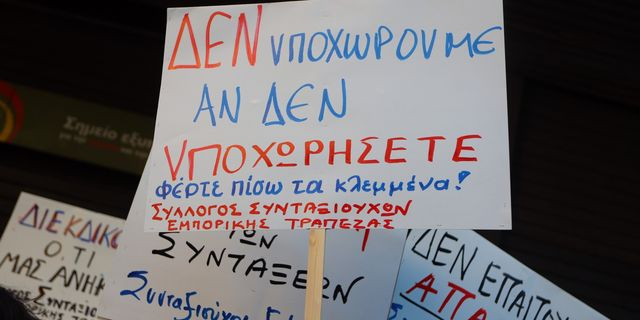 ΔΕΝ ΥΠΟΧΩΡΟΥΜΕ
ΑΝ ΔΕΝ
ΥΠΟΧΩΡΗΣΕΤΕ
φέρτε πίσω τα κλεμμένα!
ΣΥΛΛΟΓΟΣ ΣΥΝΤΑΞΙΟΥΧΩΝ
ΕΜΠΟΡΙΚΗΣ ΤΡΑΠΕΖΑΣ
Σημείο εξυπ
ΔΙΕΚΔΙΚΟ
Ο,ΤΙ
ΜΑΣ ΑΝΗΚ
ΣΥΝΤΑΞΕΩΝ
Συνταξιούχοι
ΔΕΝ ΕΠΑΙΤΟΥ
ΑΠΑ